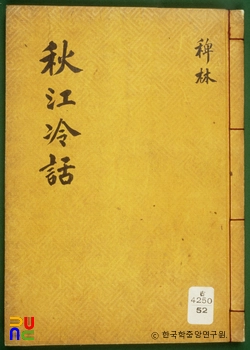 稗林
秋江冷話
4250
52
© 한국학중앙연구원